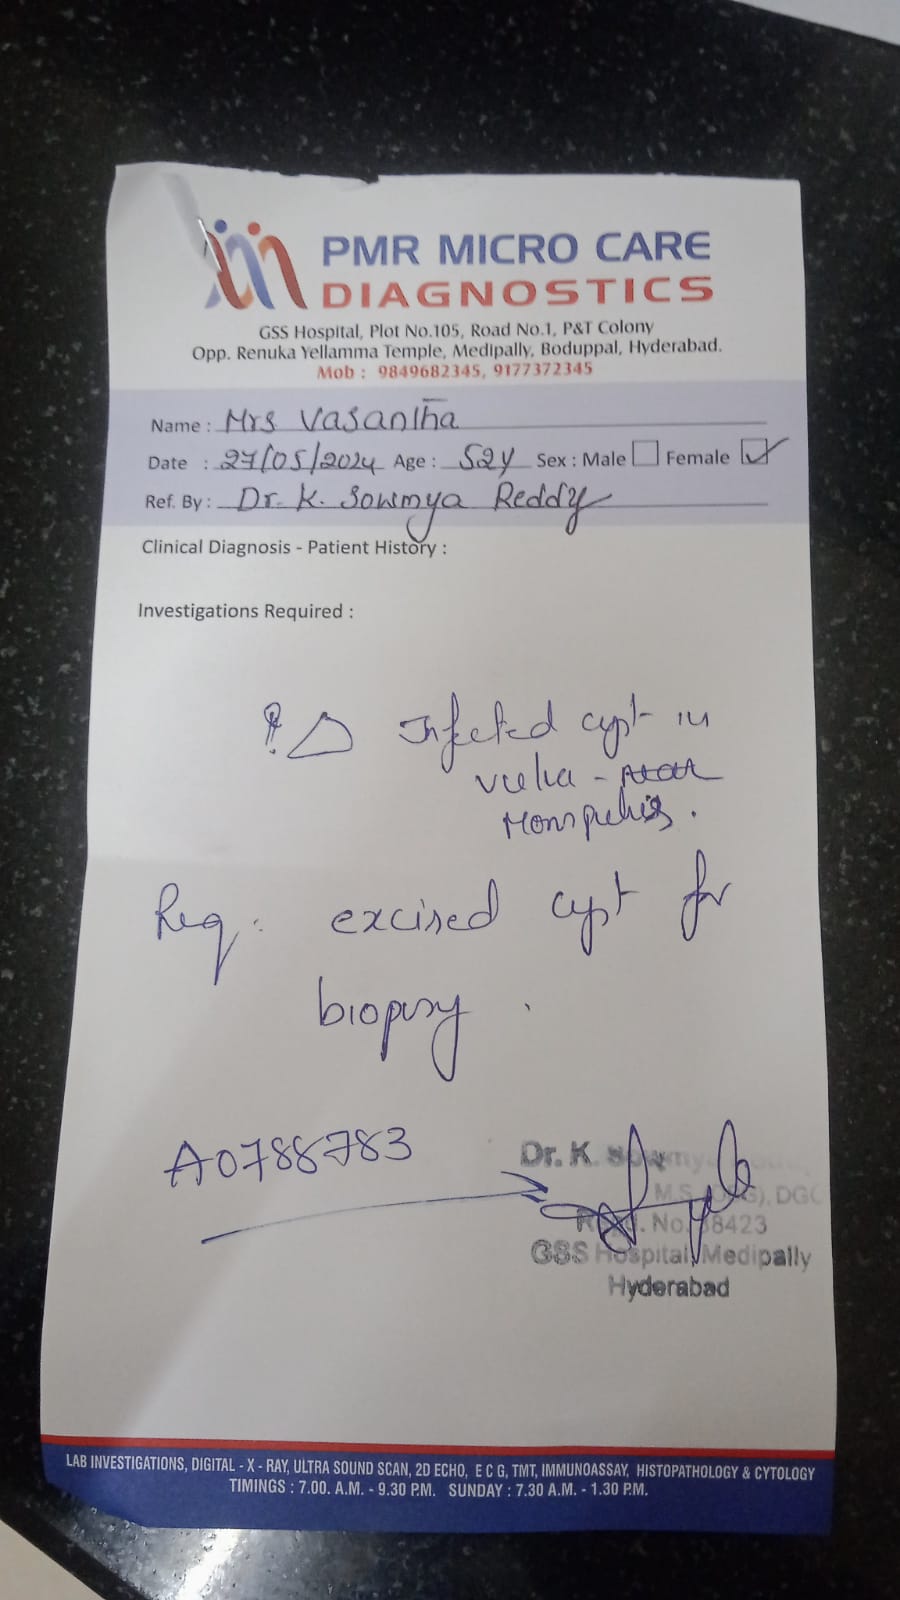 PMR MICRO CARE
DIAGNOSTICS
GSS Hospital, Plot No.105, Road No.1, P&T Colony
Opp. Renuka Yellamma Temple, Medipally, Boduppal, Hyderabad.
Mob : 9849682345, 9177372345
Name : Mrs Vasantha
Date : 27/05/2024 Age : 52y Sex : Male Female
Ref. By : Dr. K. Sowmya Reddy
Clinical Diagnosis - Patient History :
Investigations Required :
? Infected cyst in
Req: excised cyst for
biopsy.
A0788783
Dr. K. Sowmya
DGO
No. 8423
GSS Hospital, Medipally
Hyderabad
LAB INVESTIGATIONS, DIGITAL - X - RAY, ULTRA SOUND SCAN, 2D ECHO, E C G, TMT, IMMUNOASSAY, HISTOPATHOLOGY & CYTOLOGY
TIMINGS : 7.00. A.M. - 9.30 P.M. SUNDAY : 7.30 A.M. - 1.30 P.M.